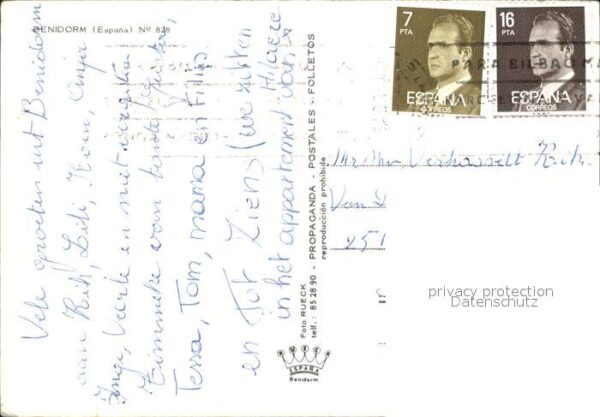 BENIDORM (España) Nº 828
Vele groeten uit Benidorm
aan Rik, Lili, Koen, Anja
Inge, Veerle en niet vergeten
Timmeke van tante
Tessa, Tom, mama en
en Tot Ziens (we zitten
in het appartement van
Foto RUECK - PROPAGANDA - POSTALES - FOLLETOS
telf.: 85 28 90 - reproducción prohibida
RUECK
ESPAÑA
Benidorm
7
PTA
ESPAÑA
CORREOS
16
PTA
ESPAÑA
CORREOS
PARA BILBAO
Mr Mevr Verhasselt
Van
251
privacy protection
Datenschutz